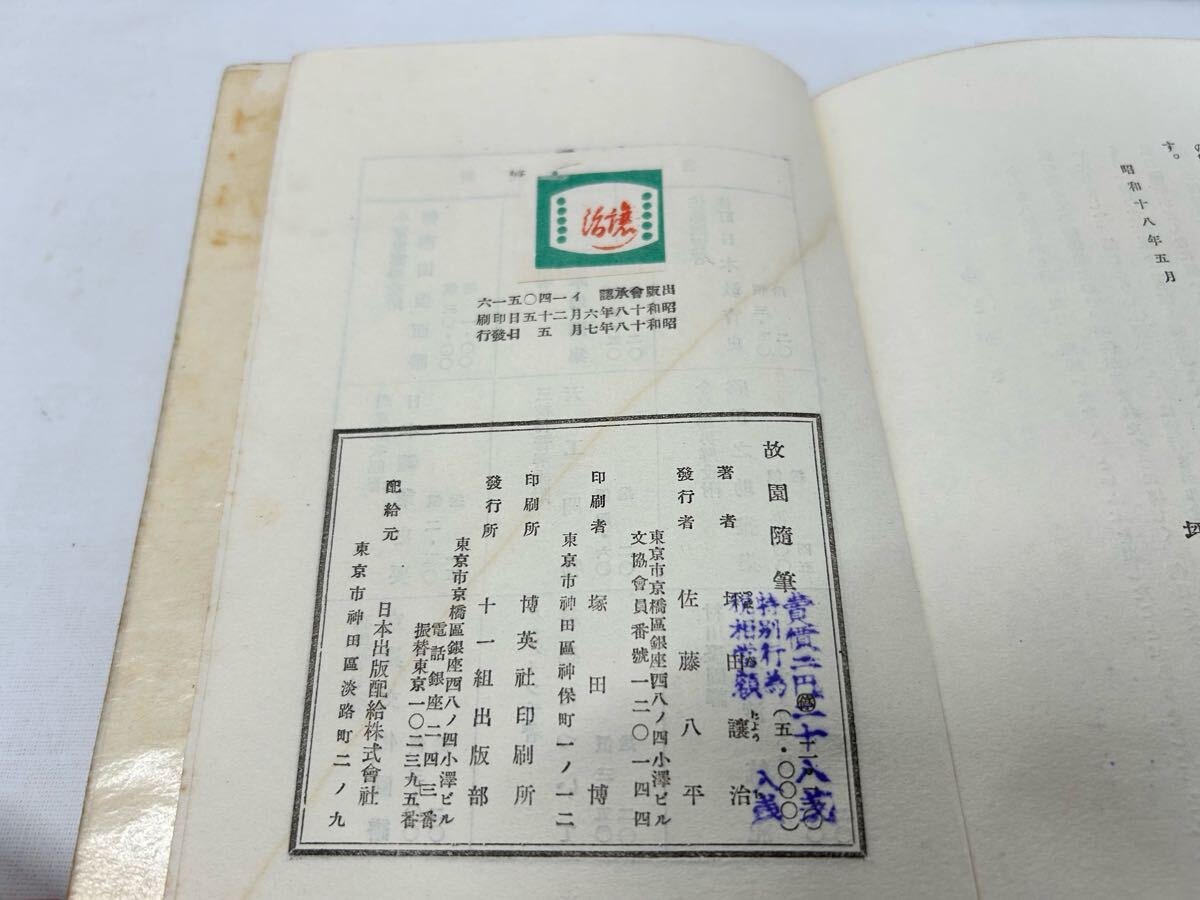 す。
昭和十八年五月
讓治
出版會承認 イ一四〇五一六
昭和十八年六月二十五日印刷
昭和十八年七月 五 日發行
故園隨筆
賣價二円二十八戔
特別行為
税相當額 八戔
(五・〇〇〇)
著者 坪田讓治
發行者 佐藤八平
東京市京橋區銀座西八ノ四小澤ビル
文協會員番號一二〇一四四
印刷者 塚田博
東京市神田區神保町一ノ一二
印刷所 博英社印刷所
發行所 十一組出版部
東京市京橋區銀座西八ノ四小澤ビル
電話銀座二一四三番
振替東京一〇二三九五番
配給元 日本出版配給株式會社
東京市神田區淡路町二ノ九